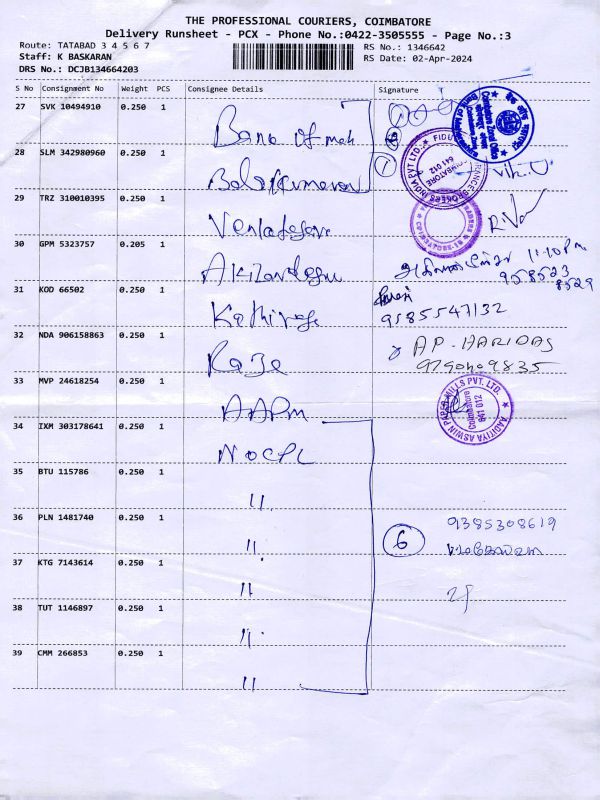 THE PROFESSIONAL COURIERS, COIMBATORE
Delivery Runsheet - PCX - Phone No.:0422-3505555 - Page No.:3
Route: TATABAD 3 4 5 6 7
RS No.: 1346642
Staff: K BASKARAN
RS Date: 02-Apr-2024
DRS No.: DCJB134664203
S No Consignment No Weight PCS Consignee Details Signature
27 SVK 10494910 0.250 1
Bank of mah
28 SLM 342980960 0.250 1
Balakumaran
29 TRZ 310010395 0.250 1
30 GPM 5323757 0.205 1
11:10 Pm
958523
8529
31 KOD 66502 0.250 1
9585547132
32 NDA 906158863 0.250 1
Raja
AP. HARIDAS
33 MVP 24618254 0.250 1
AAPM
AADITYA ASWIN PAPER MILLS PVT. LTD.
Coimbatore
641 012
34 IXM 303178641 0.250 1
NOCPL
35 BTU 115786 0.250 1
11
36 PLN 1481740 0.250 1
11.
6
9385308619
37 KTG 7143614 0.250 1
11
38 TUT 1146897 0.250 1
11.
39 CMM 266853 0.250 1
11